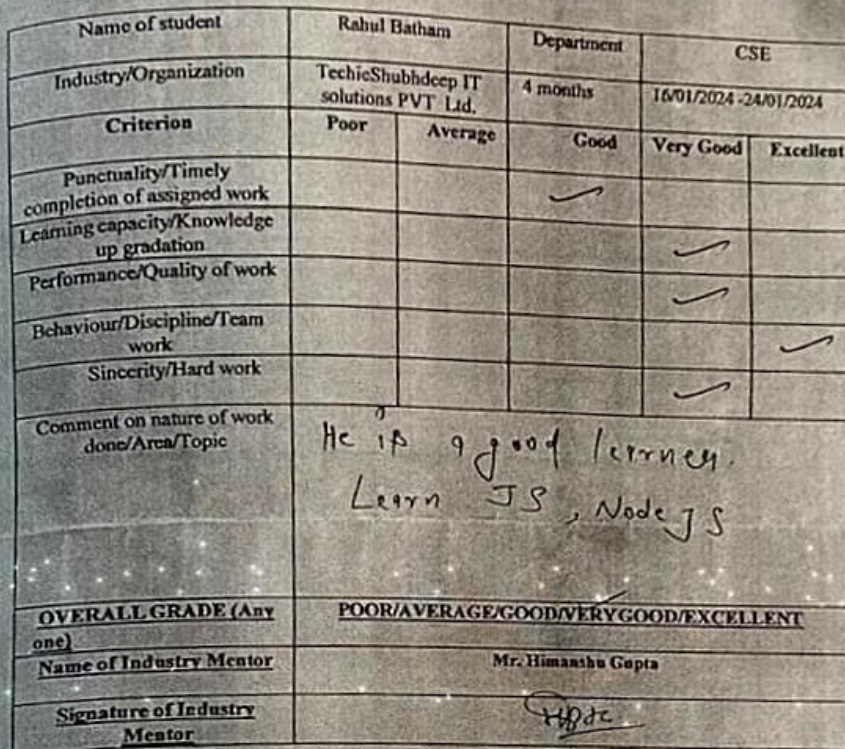 Name of student Rahul Batham Department CSE
Industry/Organization TechieShubhdeep IT 4 months 16/01/2024 -24/01/2024
solutions PVT Ltd.
Criterion Poor Average Good Very Good Excellent
Punctuality/Timely
completion of assigned work
Learning capacity/Knowledge
up gradation
Performance/Quality of work
Behaviour/Discipline/Team
work
Sincerity/Hard work
Comment on nature of work
done/Area/Topic
He is a good learner.
Learn JS, Node JS
OVERALL GRADE (Any POOR/AVERAGE/GOOD/VERYGOOD/EXCELLENT
one)
Name of Industry Mentor Mr. Himanshu Gupta
Signature of Industry
Mentor